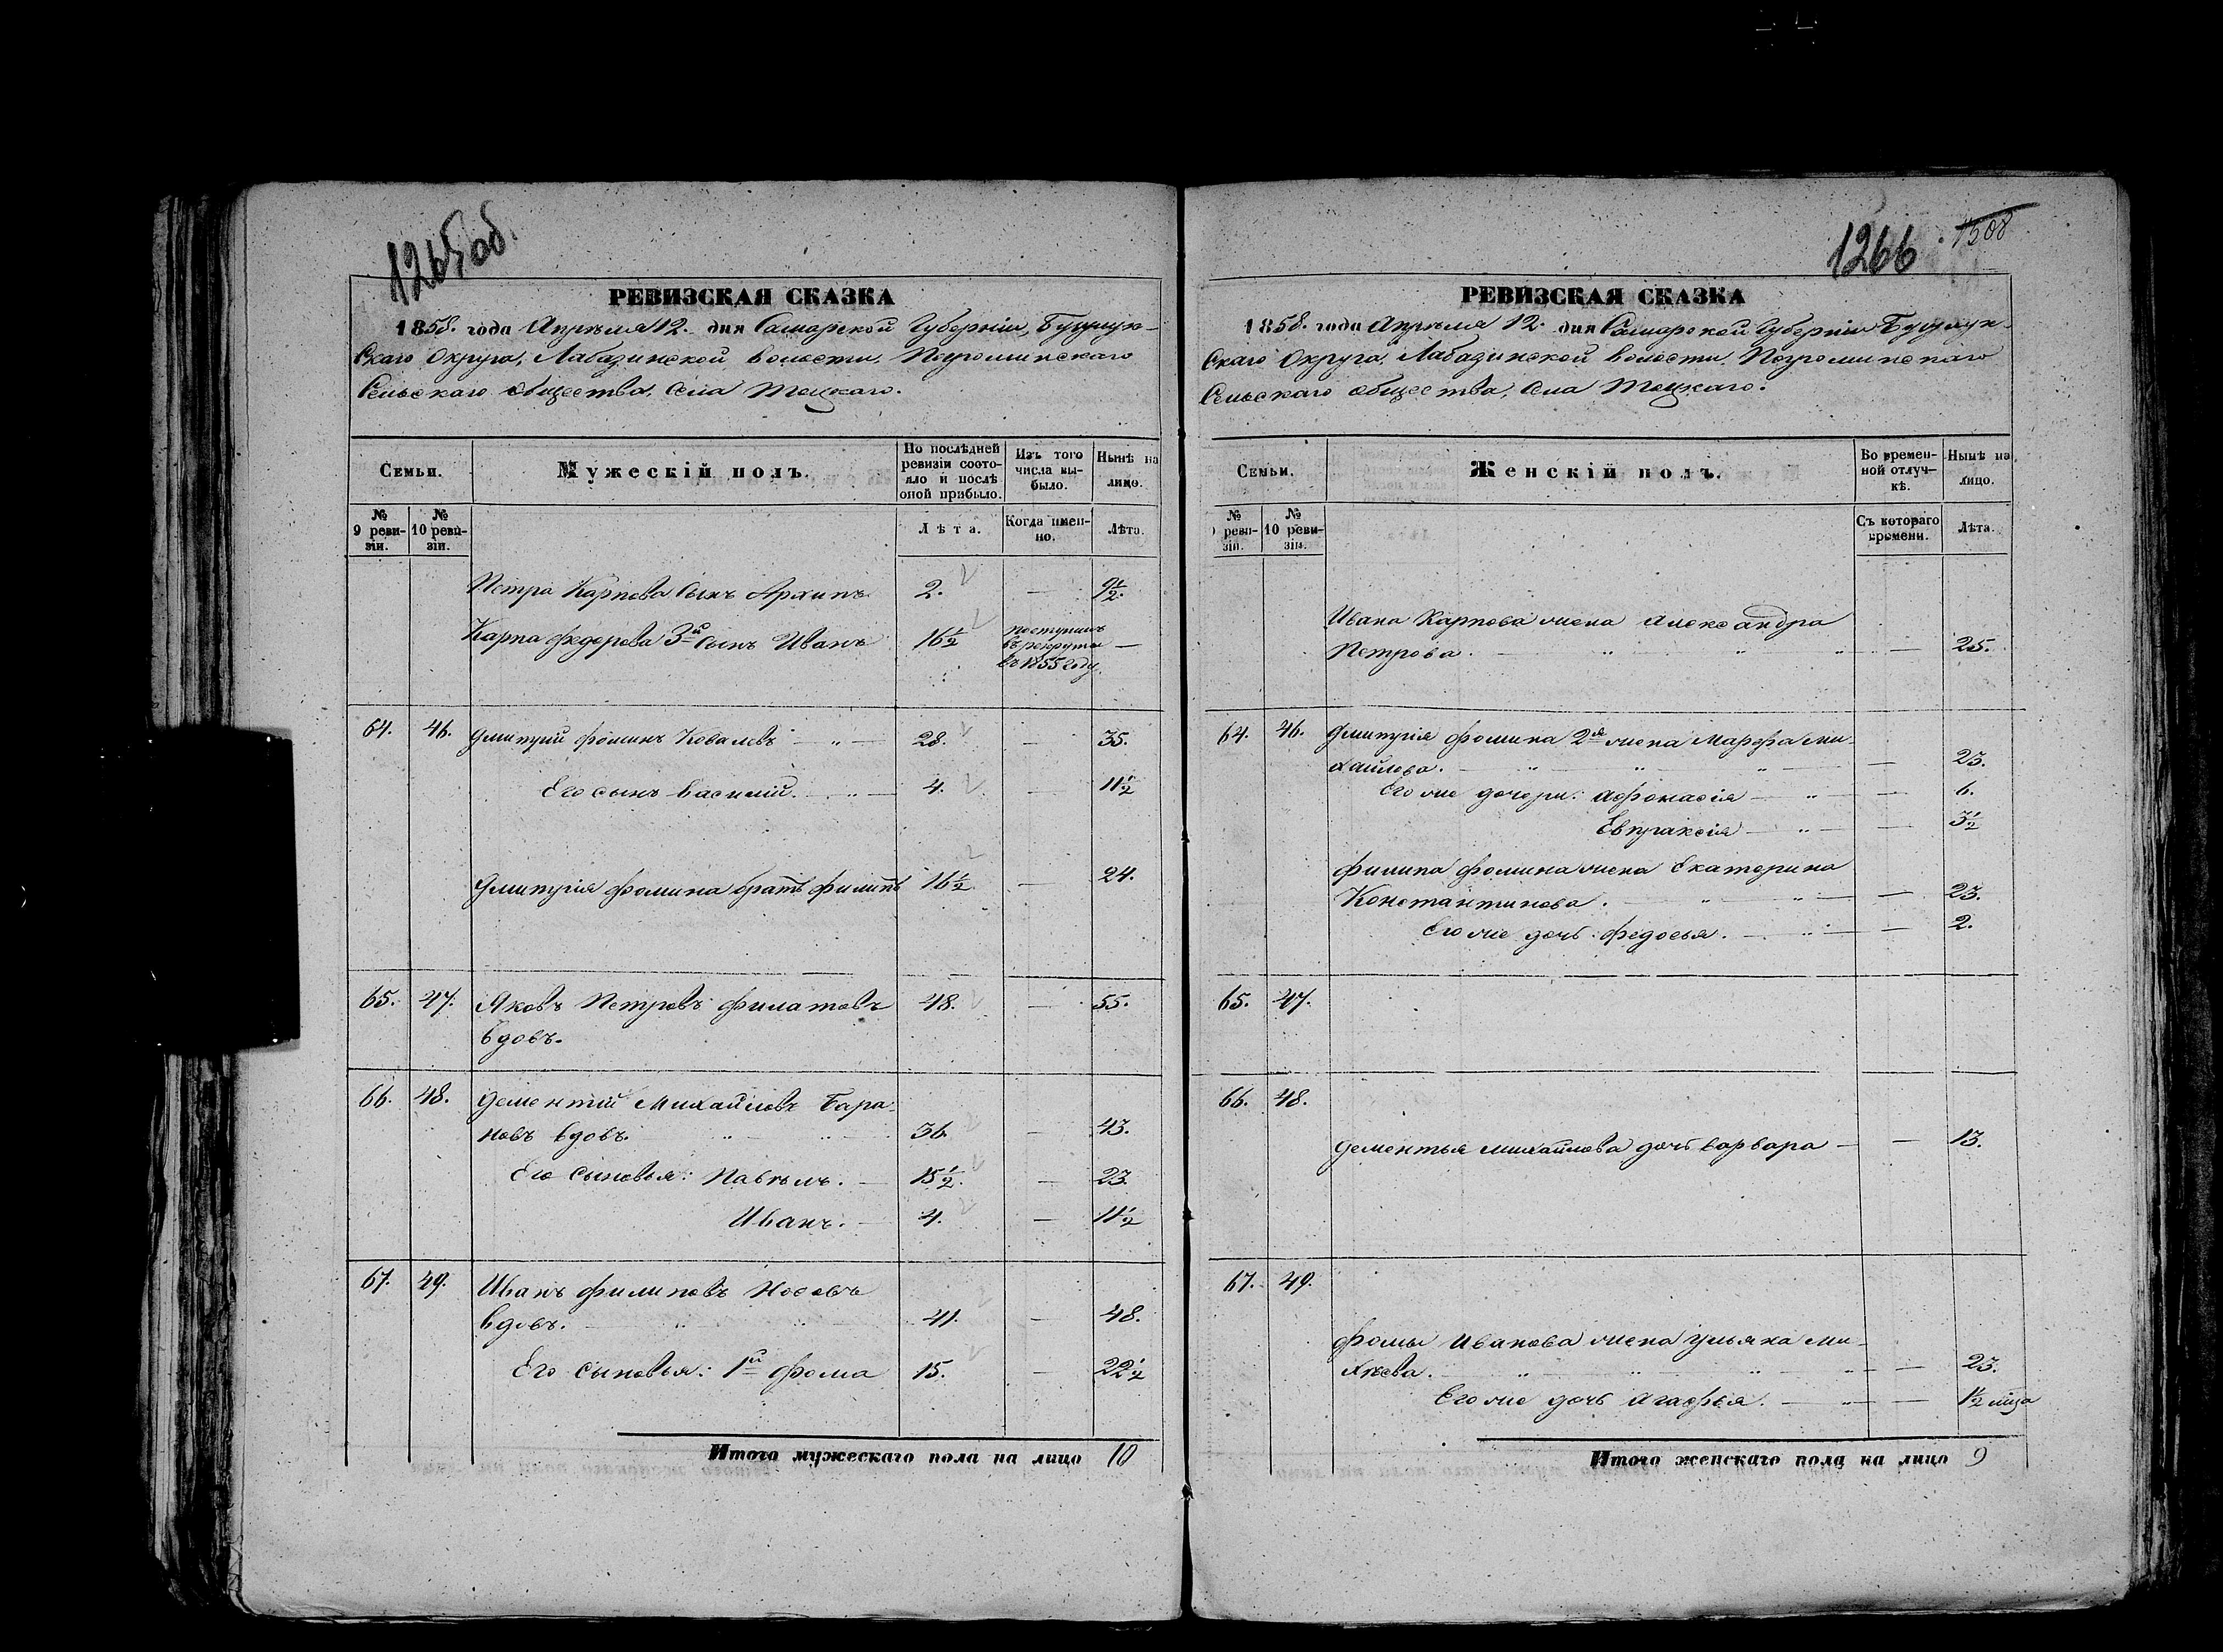 1265 об.
РЕВИЗСКАЯ СКАЗКА
1858. года Апрѣля 12. дня Самарской Губерніи, Бузулук-
скаго Округа, Лабазинской волости, Погроминскаго
Сельскаго общества, села Тоцкаго.
Семьи.
Мужескій полъ.
По послѣдней ревизіи состо-яло и послѣ оной прибыло.
Изъ того числа вы-было.
Нынѣ на лицо.
№ 9 реви-зіи.
№ 10 реви-зіи.
Лѣта.
Когда имен-но.
Лѣта.
Петра Карпова сынъ Архипъ 2. — 9½.
Карпа Федорова 3й сынъ Иванъ 16½ поступилъ въ рекруты въ 1855 году. —
64. 46. Дмитрій Фоминъ Ковалевъ — „ — 28. — 35.
Его сынъ Василій. — „ — 4. — 11½
Дмитрія Фомина братъ Филипъ 16½. — 24.
65. 47. Яковъ Петровъ Филатовъ 48. — 55.
вдовъ.
66. 48. Дементій Михайловъ Бара-
новъ вдовъ. — „ — „ — 36. — 43.
Его сыновья: Павѣлъ. — 15½. — 23.
Иванъ. — 4. — 11½
67. 49. Иванъ Филиповъ Носовъ
вдовъ. — „ — „ — 41. — 48.
Его сыновья: 1й Фома 15. — 22½
Итого мужескаго пола на лицо 10
1266
1308
РЕВИЗСКАЯ СКАЗКА
1858. года Апрѣля 12. дня Самарской Губерніи Бузулук-
скаго Округа, Лабазинской волости, Погроминскаго
Сельскаго общества, села Тоцкаго.
Семьи.
Женскій полъ.
Во времен-ной отлуч-кѣ.
Нынѣ на лицо.
№ 9 реви-зіи.
№ 10 реви-зіи.
Съ котораго времени.
Лѣта.
Ивана Карпова жена Александра
Петрова. — „ — „ — „ — 25.
64. 46. Дмитрія Фомина 2я жена Марфа Ми-
хайлова. — „ — „ — „ — — 23.
Его же дочери: Афонасія — „ — — 6.
Евпраксія — „ — — 3½
Филипа Фомина жена Екатерина
Константинова. — „ — „ — — 23.
Его же дочь: Федосья. — „ — — 2.
65. 47.
66. 48.
Дементья Михайлова дочь Варвара — — 13.
67. 49.
Фомы Иванова жена Ульяна Ми-
хѣева. — „ — „ — „ — — 23.
Его же дочь Агафья. — „ — — 1½ мца
Итого женскаго пола на лицо 9